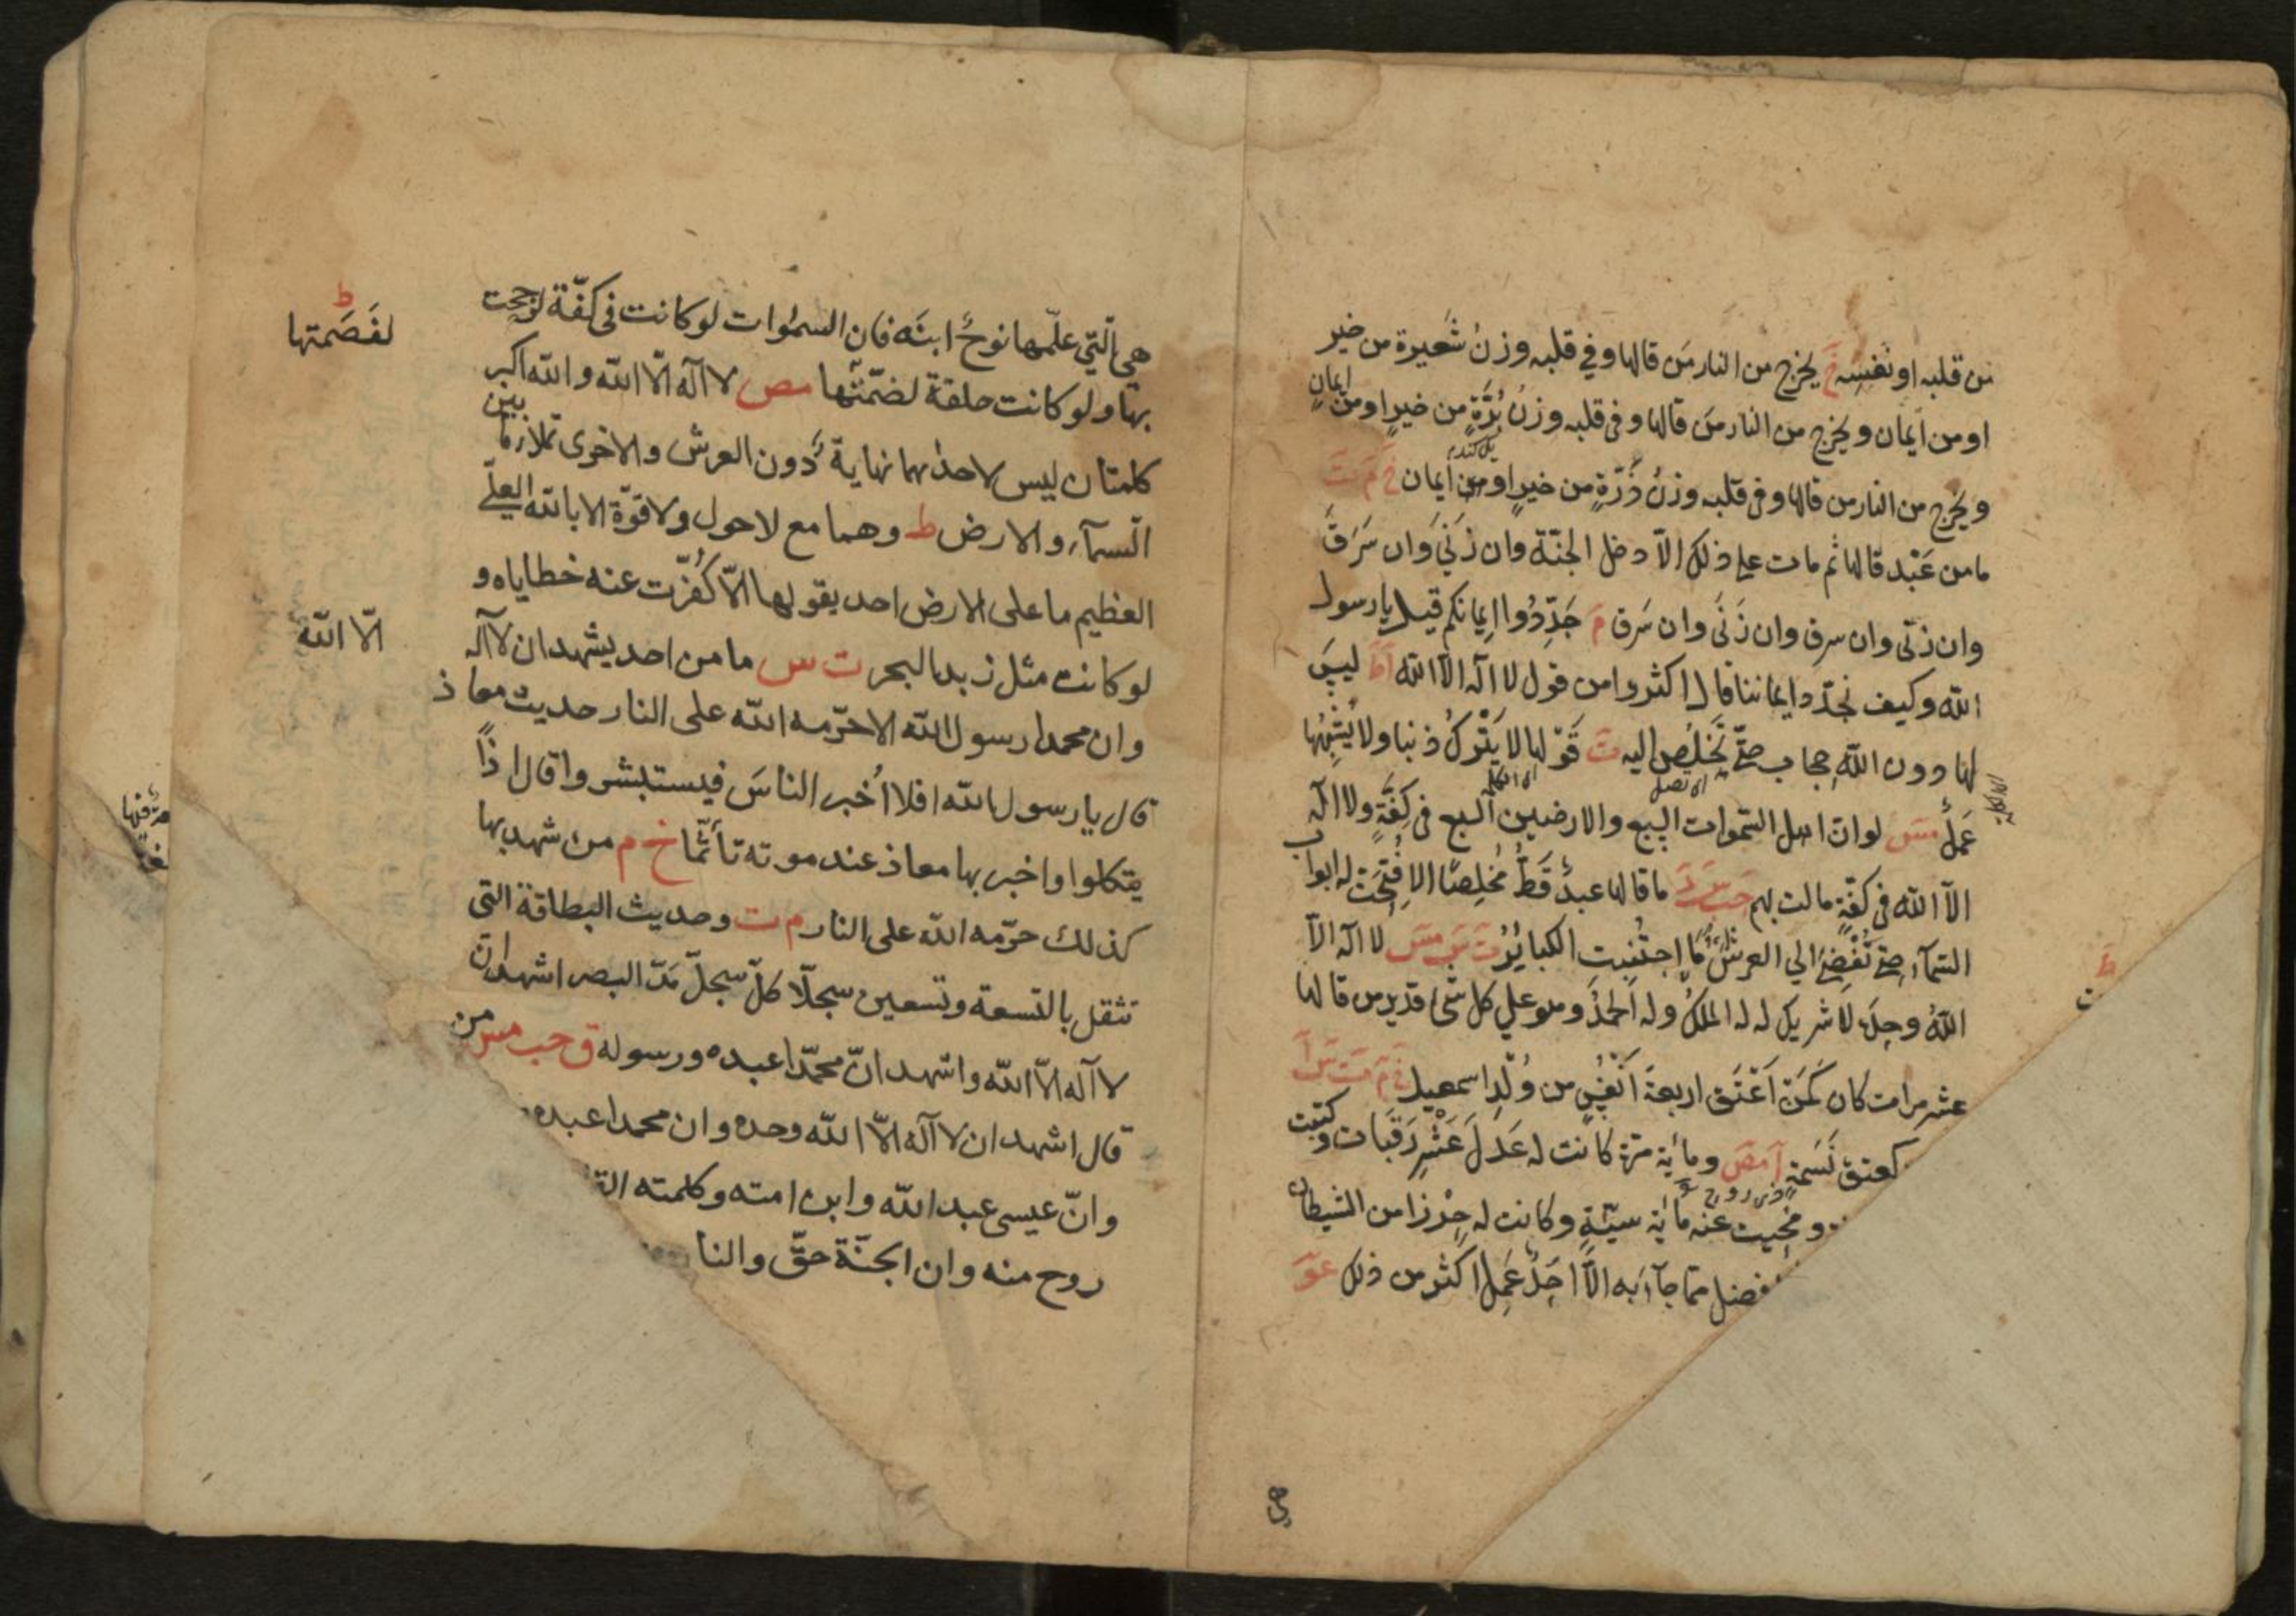 من قلبه او نفسه خ يخرج من النار من قالها وفي قلبه وزن شعيرة من خير
او من ايمان ويخرج من النار من قالها وفي قلبه وزن بُرّة من خير او من ايمان
ويخرج من النار من قالها وفي قلبه وزن ذرّة من خير او من ايمان خ م ت
ما من عبد قالها ثم مات على ذلك الّا دخل الجنّة وان زنى وان سرق
وان زنى وان سرق وان زنى وان سرق م جدّدوا ايمانكم قيل يا رسول
الله وكيف نجدّد ايماننا قال اكثروا من قول لا اله الّا الله ا ط ليس
لها دون الله حجاب حتى تخلص اليه ت قولها لا يترك ذنبا ولا يشبهها
عمل مس لو ان اهل السموات السبع والارضين السبع في كفّة ولا اله
الّا الله في كفّة مالت بهم حب س ر ما قالها عبد قط مخلصا الا فتحت له ابواب
السمآء حتى تفضي الى العرش ما اجتنبت الكبائر ت س مس لا اله الّا
الله وحده لا شريك له له الملك وله الحمد وهو على كل شئ قدير من قالها
عشر مرات كان كمن اعتق اربعة انفس من ولد اسمعيل خ م ت س ا
كعتق نسمة ا مص ومائة مرّة كانت له عدل عشر رقبات وكتبت
ومحيت عنه مائة سيّئة وكانت له حرزا من الشيطان
فضل ممّا جآء به الّا احد عمل اكثر من ذلك عو
هي
هي الّتي علّمها نوح ابنه فان السموات لو كانت في كفّة لرجحت
بها ولو كانت حلقة لضمّتها مص لا اله الّا الله والله اكبر
كلمتان ليس لاحدٰهما نهاية دون العرش والاخرى تملأ ما بين
السمآء والارض ط وهما مع لا حول ولا قوّة الا بالله العليّ
العظيم ما على الارض احد يقولها الّا كُفّرت عنه خطاياه و
لو كانت مثل زبد البحر ت س ما من احد يشهد ان لا اله
الّا الله
وان محمدا رسول الله الا حرّمه الله على النار حديث معاذ
قال يا رسول الله افلا اُخبر الناسَ فيستبشروا قال اذًا
يتكلوا واخبر بها معاذ عند موته تأثّما خ م من شهد بها
كذلك حرّمه الله على النار م ت وحديث البطاقة التى
تثقل بالتسعة وتسعين سجلّا كلّ سجلّ مَدّ البصر اشهد ان
لا اله الّا الله واشهد انّ محمّدا عبده ورسوله ق حب مس من
قال اشهد ان لا اله الّا الله وحده وان محمدا عبده
وانّ عيسى عبد الله وابن امته وكلمته
روح منه وان الجنّة حقّ والنا
ط
لفَصَمتها